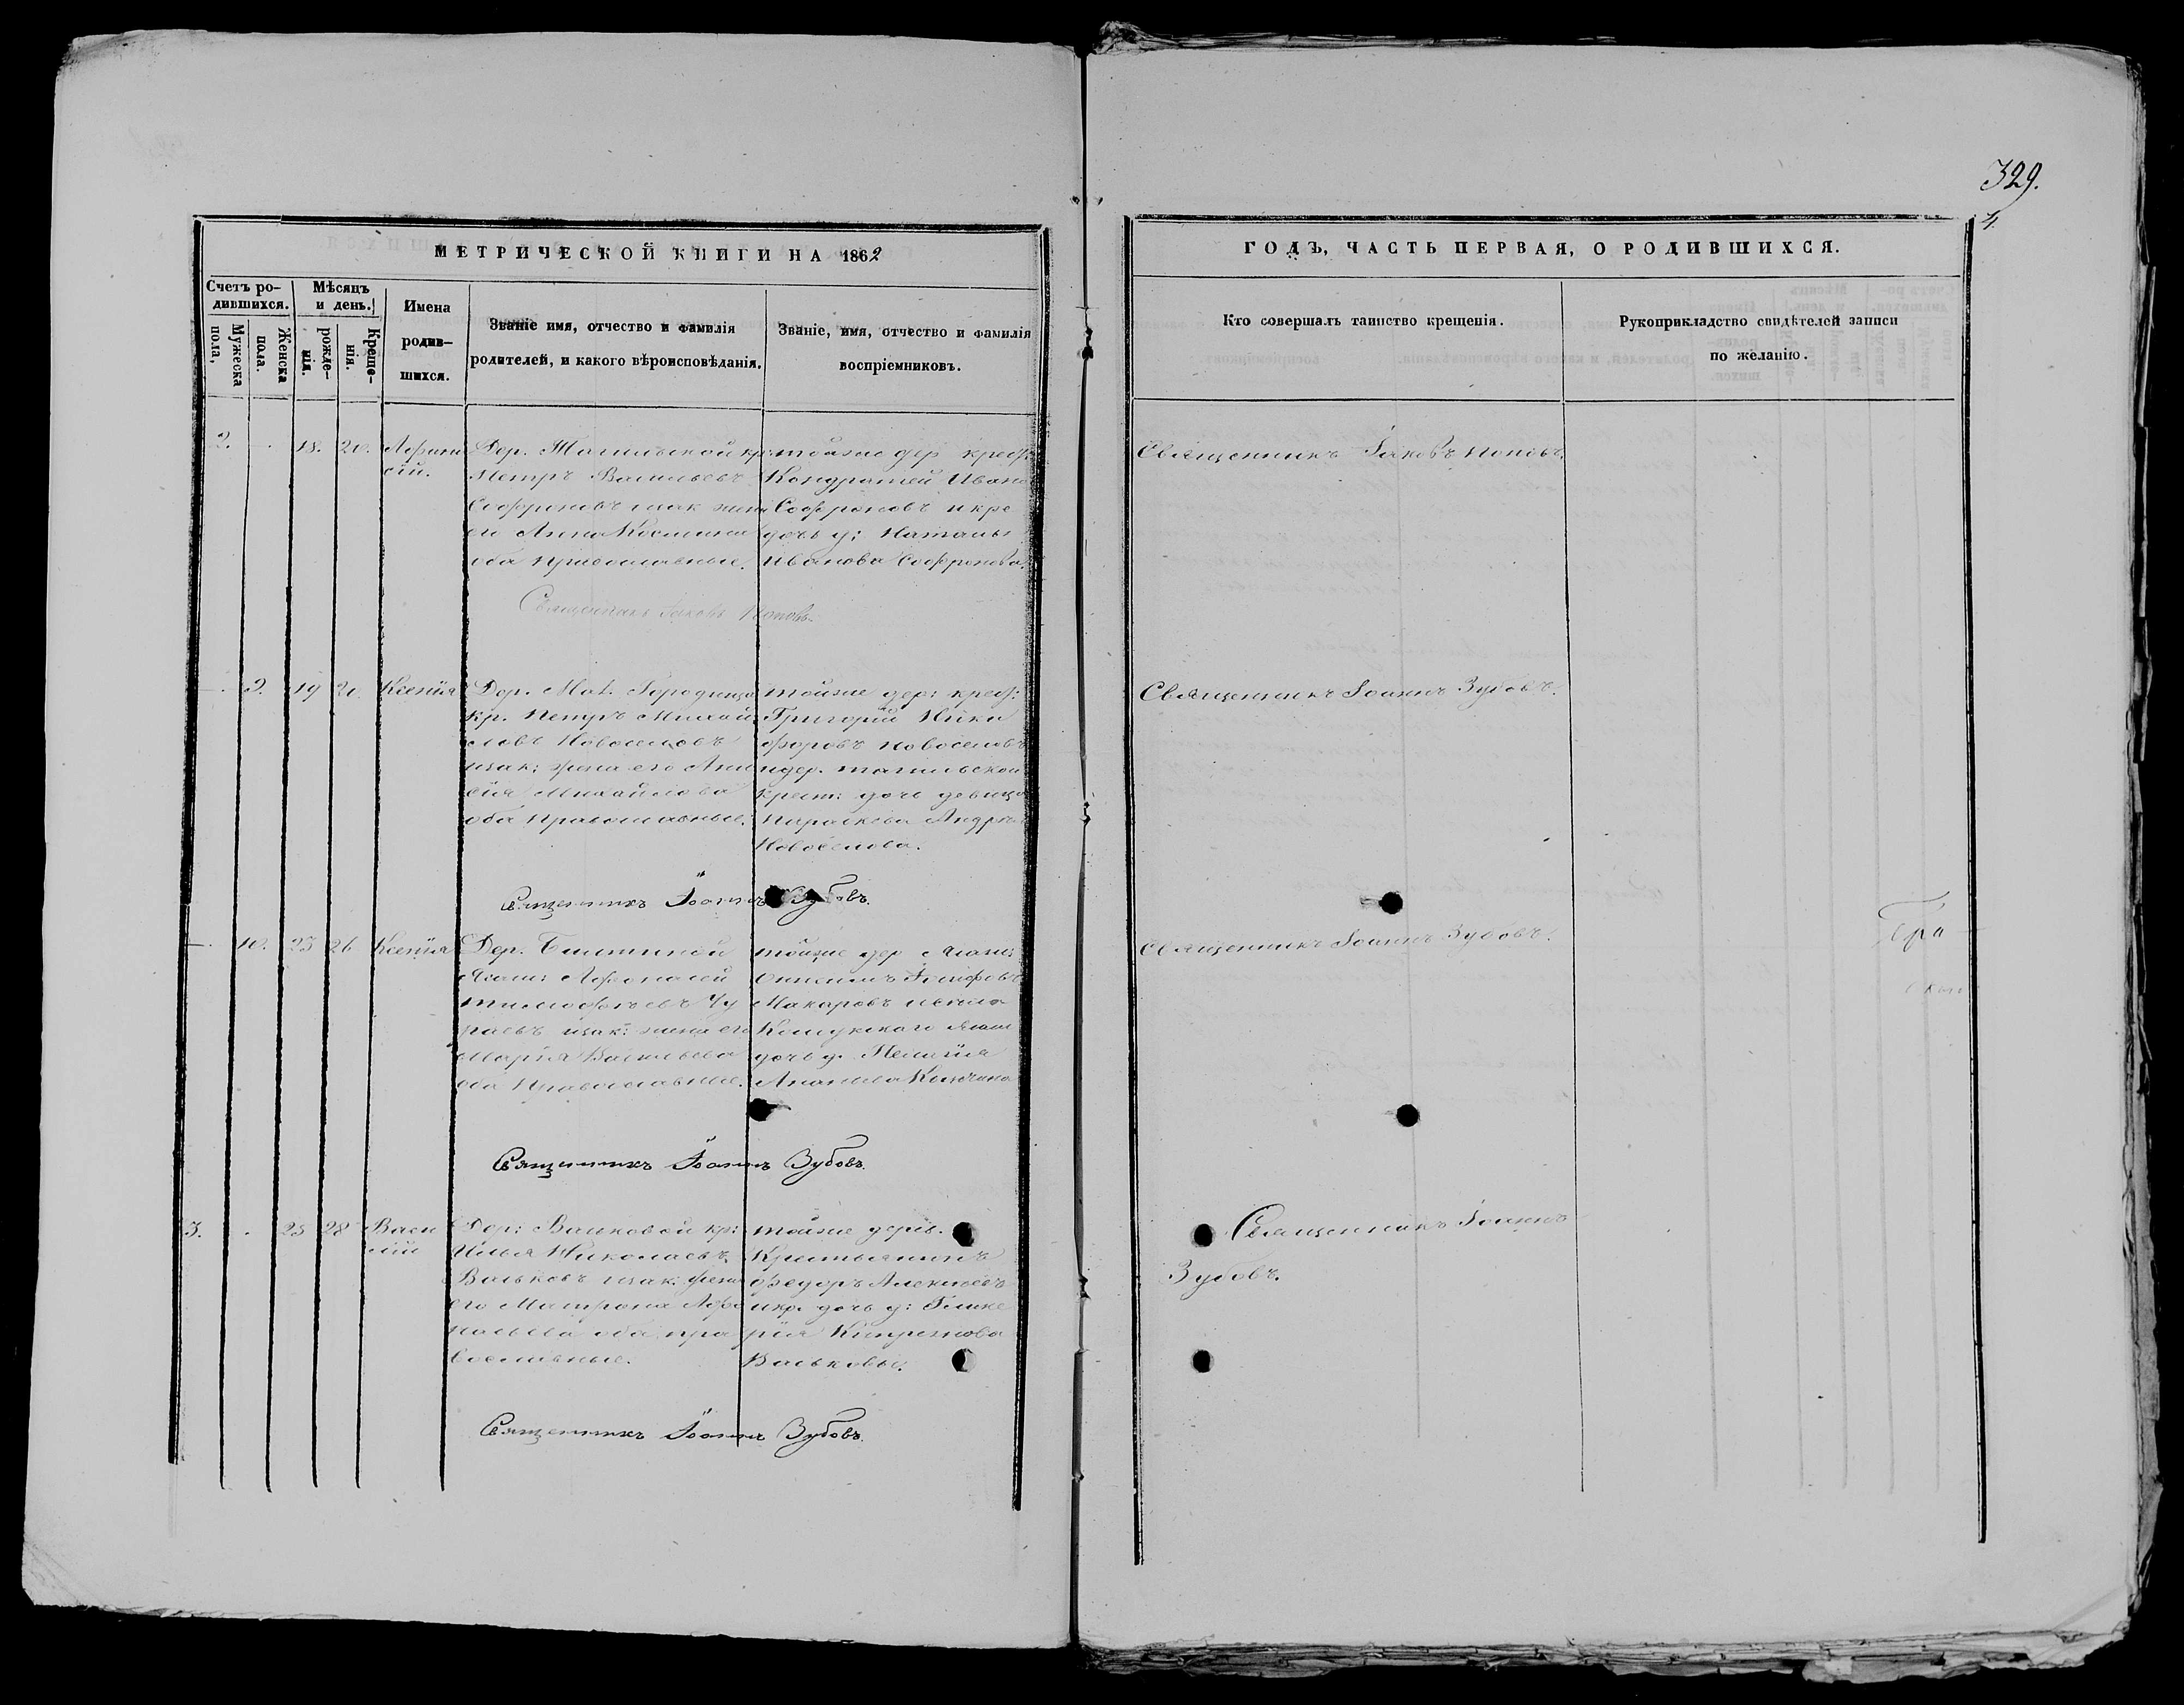 329.
4.
МЕТРИЧЕСКОЙ КНИГИ НА 1862
ГОДЪ, ЧАСТЬ ПЕРВАЯ, О РОДИВШИХСЯ.
Счетъ ро-
дившихся.
Мужеска
пола,
Женска
пола.
Мѣсяцъ
и день.
рожде-
нія.
Креще-
нія.
Имена
родив-
шихся.
Званіе имя, отчество и фамилія
родителей, и какого вѣроисповѣданія.
Званіе, имя, отчество и фамилія
воспріемниковъ.
Кто совершалъ таинство крещенія.
Рукоприкладство свидѣтелей записи
по желанію.
2. 18. 20.
Дер. Тагильской кр:
Петръ Васильевъ
Софроновъ и зак жена
его Анна Космина
оба Православные.
тойже дер крест:
Кондратей Ивано
Софроновъ и кре
дочь д: Наталья
Иванова Софронова.
Священникъ Іаковъ Поповъ
Священникъ Іаковъ Поповъ.
9. 19 20. Ксенія
Дер. Мал. Городища
кр. Петръ Михай
ловъ Новоселовъ
и зак: жена его
Михайлова
оба Православные.
тойже дер: крест:
Григорій Ники
форовъ Новоселовъ
и дер. тагильской
крест: дочь девица
Параскева Андрее
Новоселова.
Священникъ Іоаннъ Зубовъ.
Священникъ Іоаннъ Зубовъ.
10. 25 26 Ксенія
Дер.
Афонасей
тимофѣевъ Чу
раевъ и зак: жена его
Марія Васильева
оба Православные.
тойже дер
Макаровъ
дочь д. Пелагія
Священникъ Іоаннъ Зубовъ.
Священникъ Іоаннъ Зубовъ.
3. 25 28 Васи
лій
Дер: Вальковой кр:
Илья Николаевъ
Вальковъ и зак: жена
его Матрона Афо
насьева оба пра
вославные.
тойже дерев.
Крестьянинъ
Федоръ Алексѣевъ
и кр. дочь д: Глике
рія Кипреянова
Вальковы.
Священникъ Іоаннъ
Зубовъ.
Священникъ Іоаннъ Зубовъ.